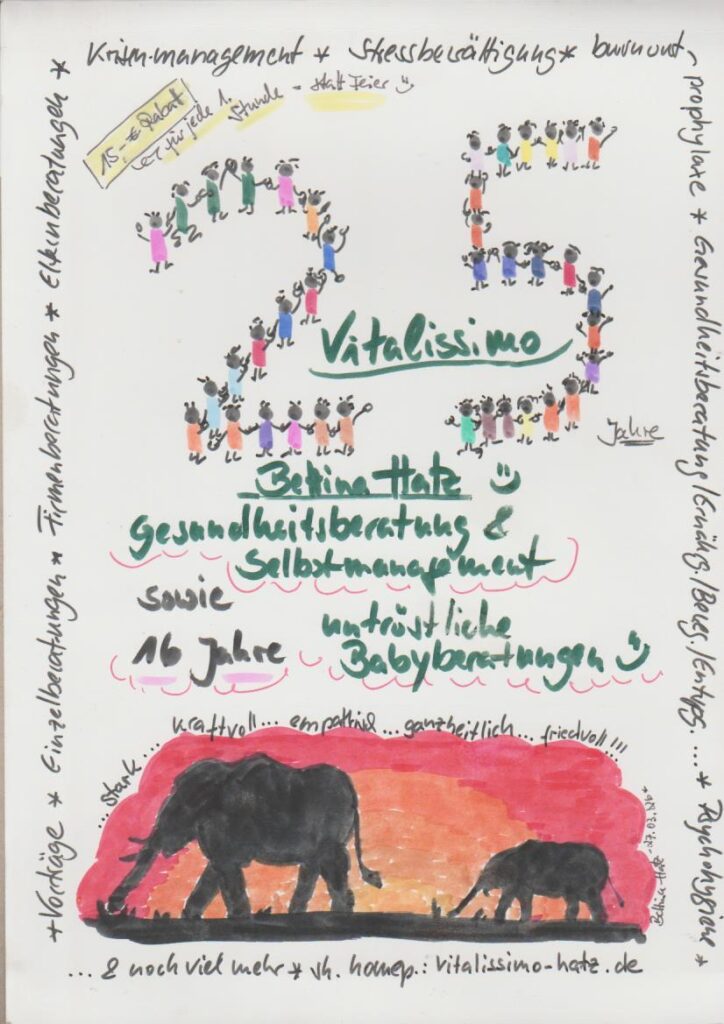 Krisenmanagement * Stressbewältigung * burnout-
prophylaxe * Gesundheitsberatung/Ernährg./Beweg./Entsp. .... * Psychohygiene *
+ Vorträge * Einzelberatungen * Firmenberatungen * Elternberatungen *
15.- € Rabatt
für jede 1.
Stunde - statt Feier
25
Vitalissimo
Jahre
Bettina Hatz
Gesundheitsberatung &
Selbstmanagement
sowie
16 Jahre
untröstliche
Babyberatungen
... stark ... kraftvoll ... empathisch ... ganzheitlich ... friedvoll !!!
Bettina Hatz
... & noch viel mehr * sh. homep.: vitalissimo-hatz.de